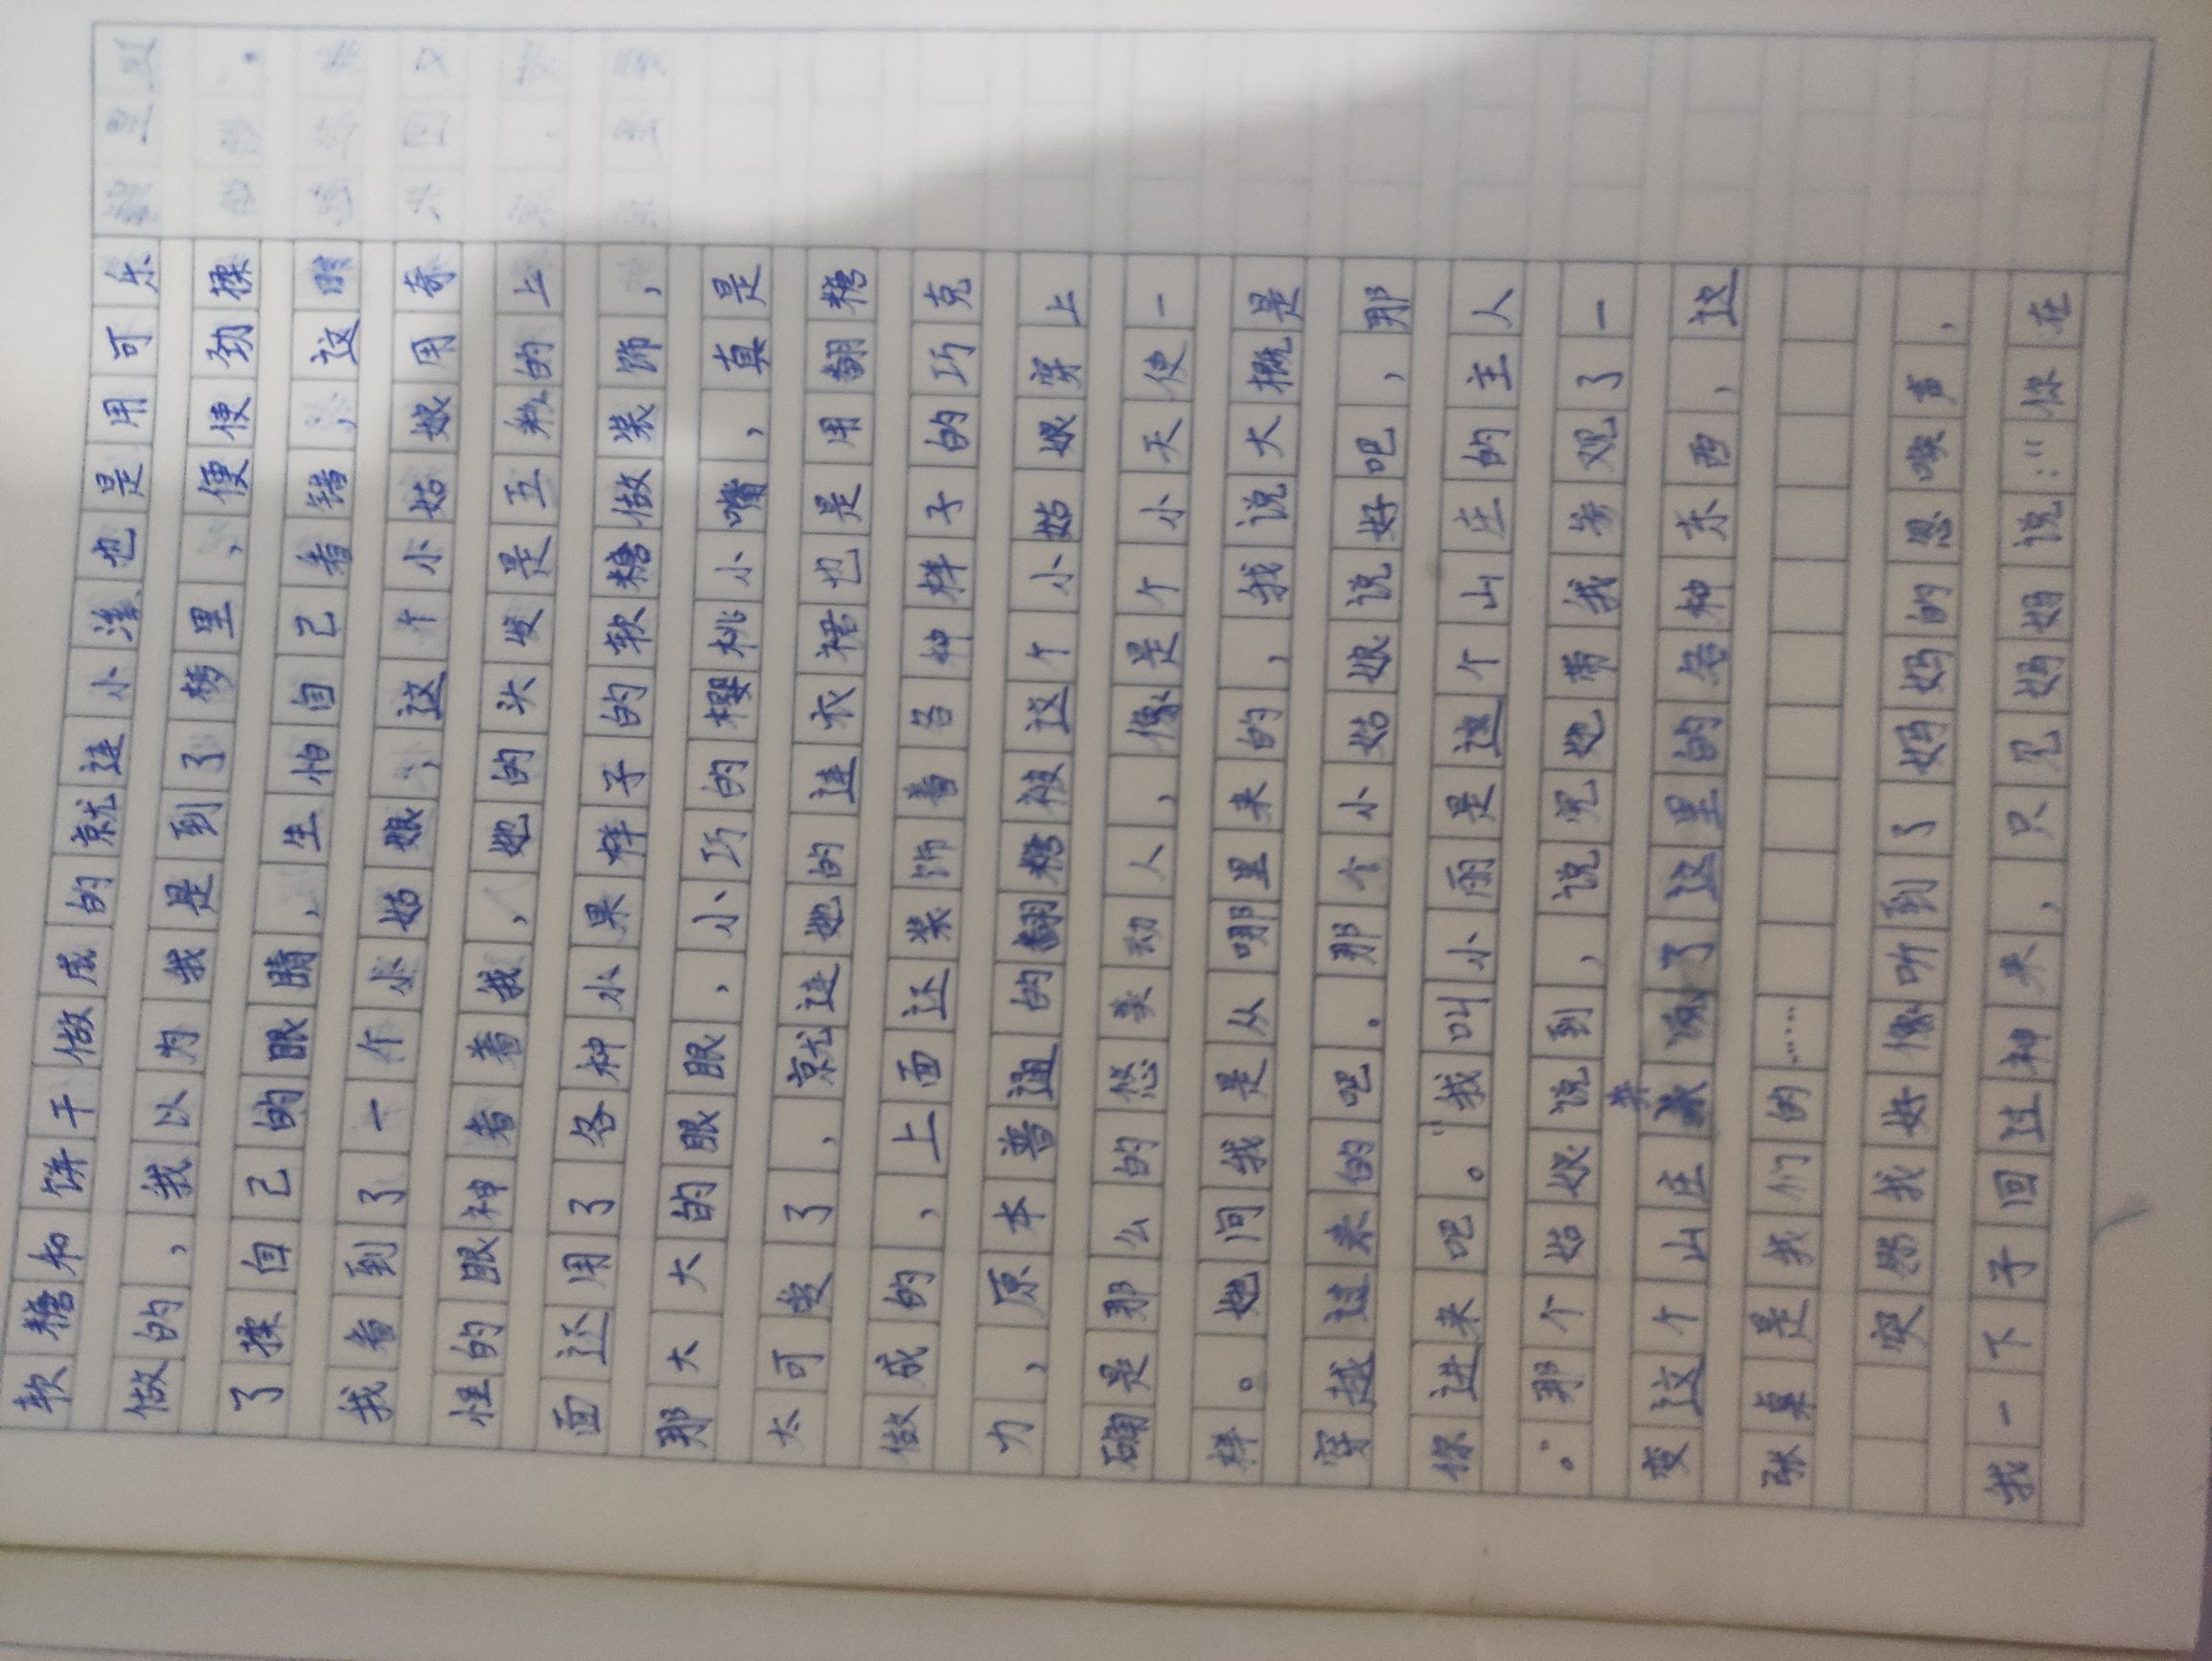 软糖和饼干做成的就连小溪也是用可乐
做的，我以为我是到了梦里，便使劲揉
了揉自己的眼睛，生怕自己看错，这时
我看到了一个小姑娘，这个小姑娘用奇
怪的眼神看着我，她的头发是五彩的上
面还用了各种水果样子的软糖做装饰，
那大大的眼眼，小巧的樱桃小嘴，真是
太可爱了，就连她的连衣裙也是用翻糖
做成的，上面还装饰着各种样子的巧克
力，原本普通的翻糖被这个小姑娘穿上
确是那么的悠美动人，像是个小天使一
样。她问我是从哪里来的，我说大概是
穿越过来的吧。那个小姑娘说好吧，那
你进来吧。"我叫小雨是这个山庄的主人
。"那个姑娘说到，说完她带我参观了一
变这个山庄了这里的各种东西，这
张桌是我们的……
突然我好像听到了妈妈的唤声，
我一下子回过神来，只见妈妈说："你在